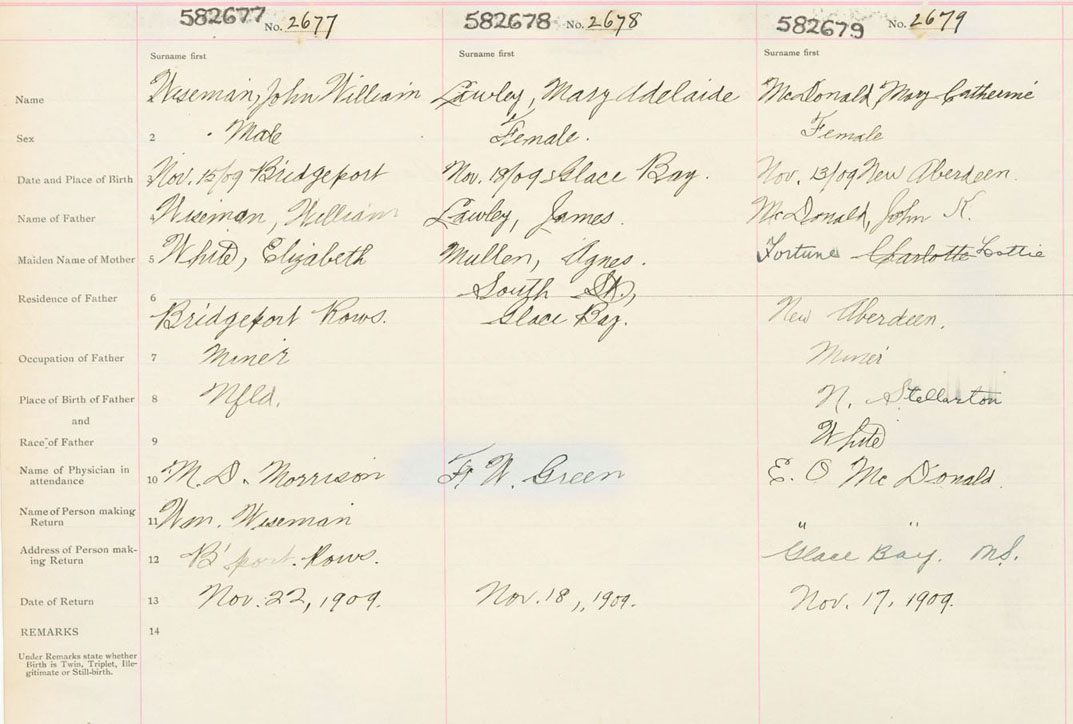 582677 No. 2677 582678 No. 2678 582679 No. 2679
Surname first Surname first Surname first
Name Wiseman, John William Lawley, Mary Adelaide McDonald, Mary Catherine
Sex 2 Male Female. Female
Date and Place of Birth 3 Nov. 15/09 Bridgeport Nov. 18/09 Glace Bay. Nov. 13/09 New Aberdeen.
Name of Father 4 Wiseman, William Lawley, James. McDonald, John K.
Maiden Name of Mother 5 White, Elizabeth Mullen, Agnes. Fortune Charlotte Lottie
South St,
Residence of Father 6
Bridgeport Rows. Glace Bay. New Aberdeen.
Occupation of Father 7 Miner Miner
Place of Birth of Father 8 Nfld. N. Stellarton
and
Race of Father 9 White
Name of Physician in
attendance 10 M. D. Morrison F. W. Green E. O McDonald
Name of Person making
Return 11 Wm. Wiseman " "
Address of Person mak-
ing Return 12 B'port. Rows. Glace Bay. N.S.
Date of Return 13 Nov. 22, 1909. Nov. 18, 1909. Nov. 17, 1909.
REMARKS 14
Under Remarks state whether
Birth is Twin, Triplet, Ille-
gitimate or Still-birth.